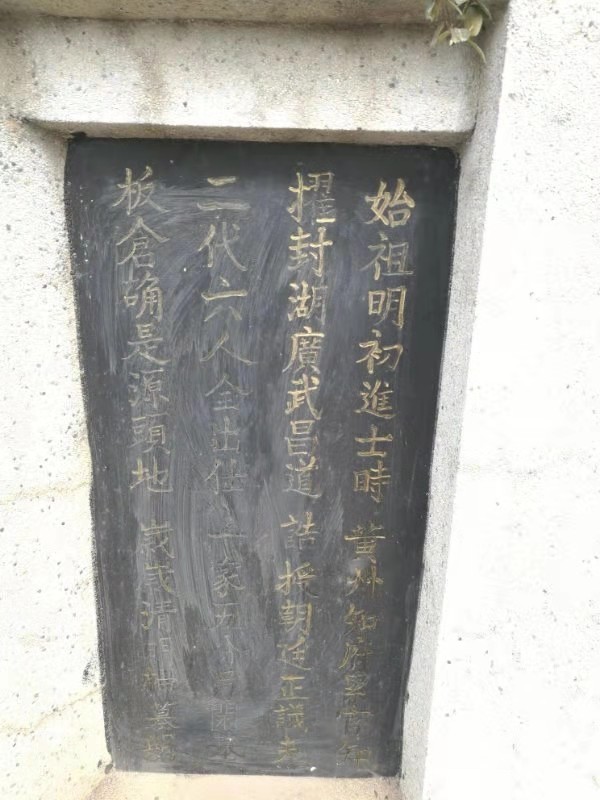 始祖明初進士時 黄州知府四百年
擢封湖廣武昌道 誥授朝廷正議夫
二代六人全出仕 一家五
板倉确是源頭地 歲歲清明掃墓